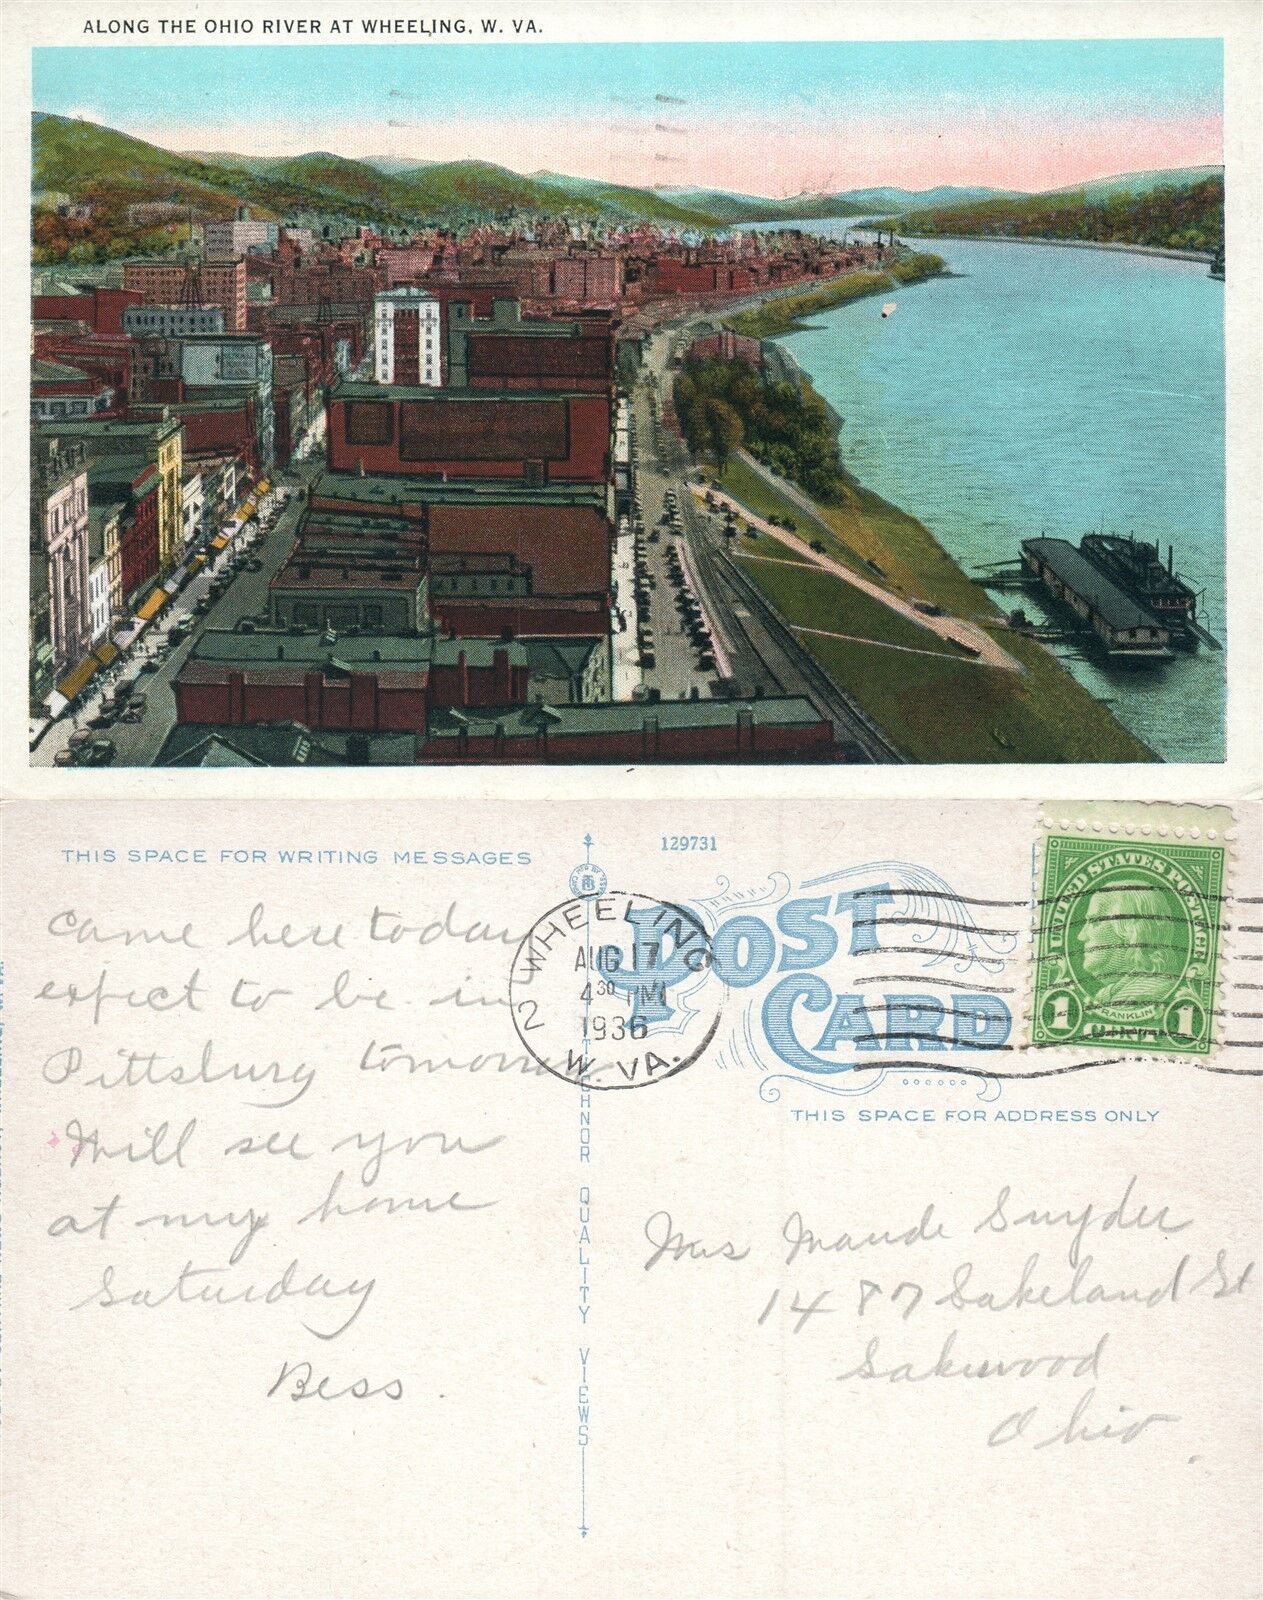 ALONG THE OHIO RIVER AT WHEELING, W. VA.
THIS SPACE FOR WRITING MESSAGES
129731
POST CARD
WHEELING
AUG 17
4 30 PM
1936
2 W. VA.
UNITED STATES POSTAGE
1 FRANKLIN 1
THIS SPACE FOR ADDRESS ONLY
Came here today
expect to be in
Pittsburg tomorrow.
Will see you
at my home
Saturday
Bess.
QUALITY VIEWS
Mrs Maude Snyder
1487 Lakeland St
Lakewood
Ohio.